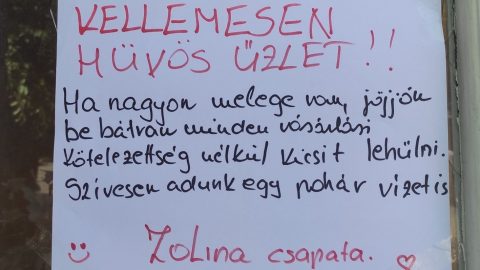 KELLEMESEN
HŰVÖS ÜZLET!!
Ha nagyon melege van, jöjjön
be bátran minden vásárlási
kötelezettség nélkül kicsit lehűlni.
Szívesen adunk egy pohár vizet is
Zolina csapata.